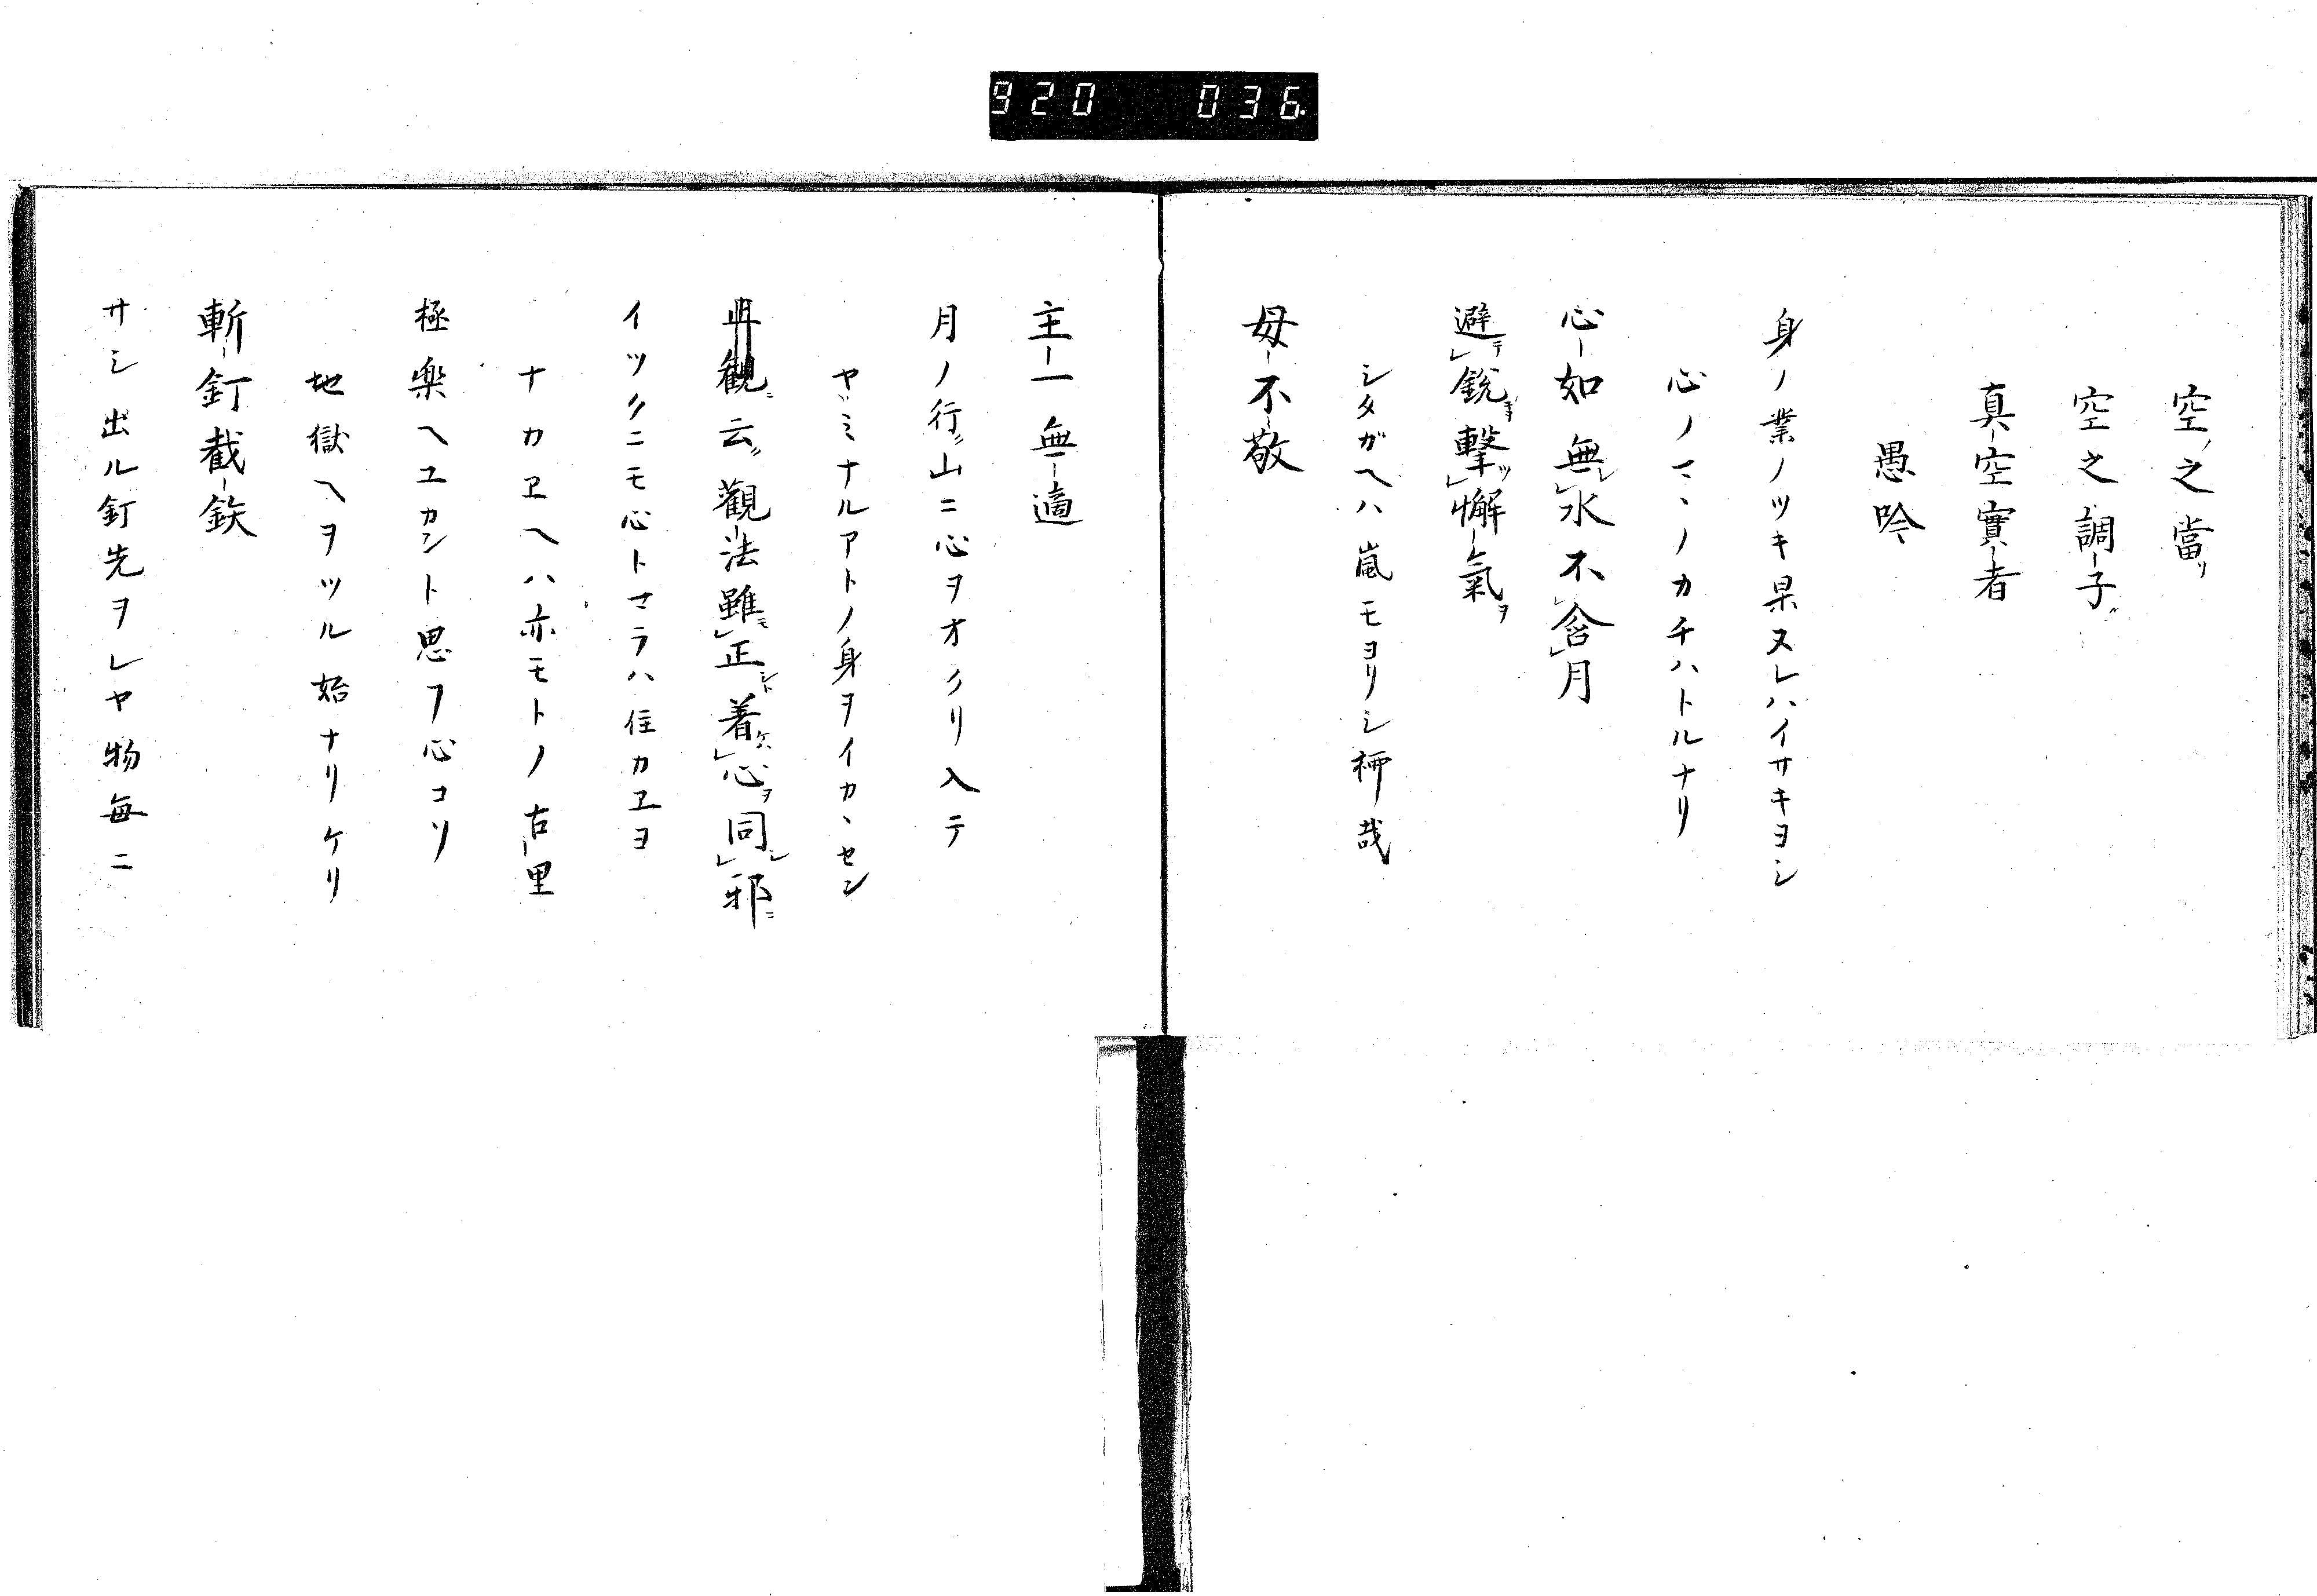 920 036
空ノ之當リ
空之調子
真空實者
愚吟
身ノ業ノツキ果ヌレハイサキヨシ
心ノマヽノカチハトルナリ
心如無レ水不レ含月
避テレ鋭ヲ撃ツレ懈氣ヲ
シタガヘハ嵐モヨリシ栁哉
毋不敬
主一無適
月ノ行ク山ニ心ヲオクリ入テ
ヤミナルアトノ身ヲイカヽセン
止観ニ云ク觀法雖モレ正シト着ケハレ心ヲ同シレ邪ニ
イツクニモ心トマラハ住カヱヨ
ナカヱヘハ亦モトノ古里
極楽ヘユカント思フ心コソ
地獄ヘヲツル始ナリケリ
斬釘截鉄
サシ出ル釘先ヲレヤ物毎ニ